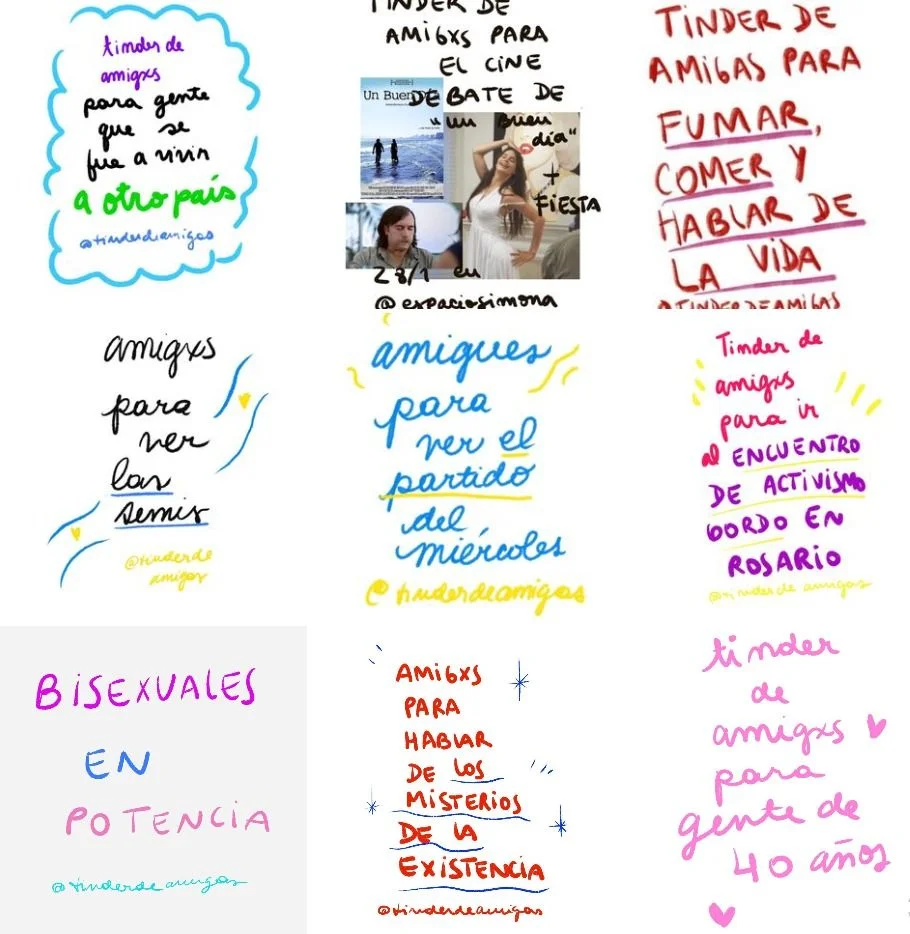 tinder de
amigxs
para gente
que se
fue a vivir
a otro país
@tinderdeamigas
TINDER DE
AMIGXS PARA
EL CINE
DEBATE DE
"un buen
día"
+
FIESTA
Un Buen Día
28/1 en
@espaciosimona
TINDER DE
AMIGAS PARA
FUMAR,
COMER Y
HABLAR DE
LA VIDA
@TINDERDEAMIGAS
amigxs
para
ver
las
semis
@tinderde
amigas
amigues
para
ver el
partido
del
miércoles
@tinderdeamigas
Tinder de
amigxs
para ir
al ENCUENTRO
DE ACTIVISMO
GORDO EN
ROSARIO
@tinder de amigas
BISEXUALES
EN
POTENCIA
@tinderdeamigas
AMIGXS
PARA
HABLAR
DE LOS
MISTERIOS
DE LA
EXISTENCIA
@tinderdeamigas
tinder
de
amigxs
para
gente de
40 años